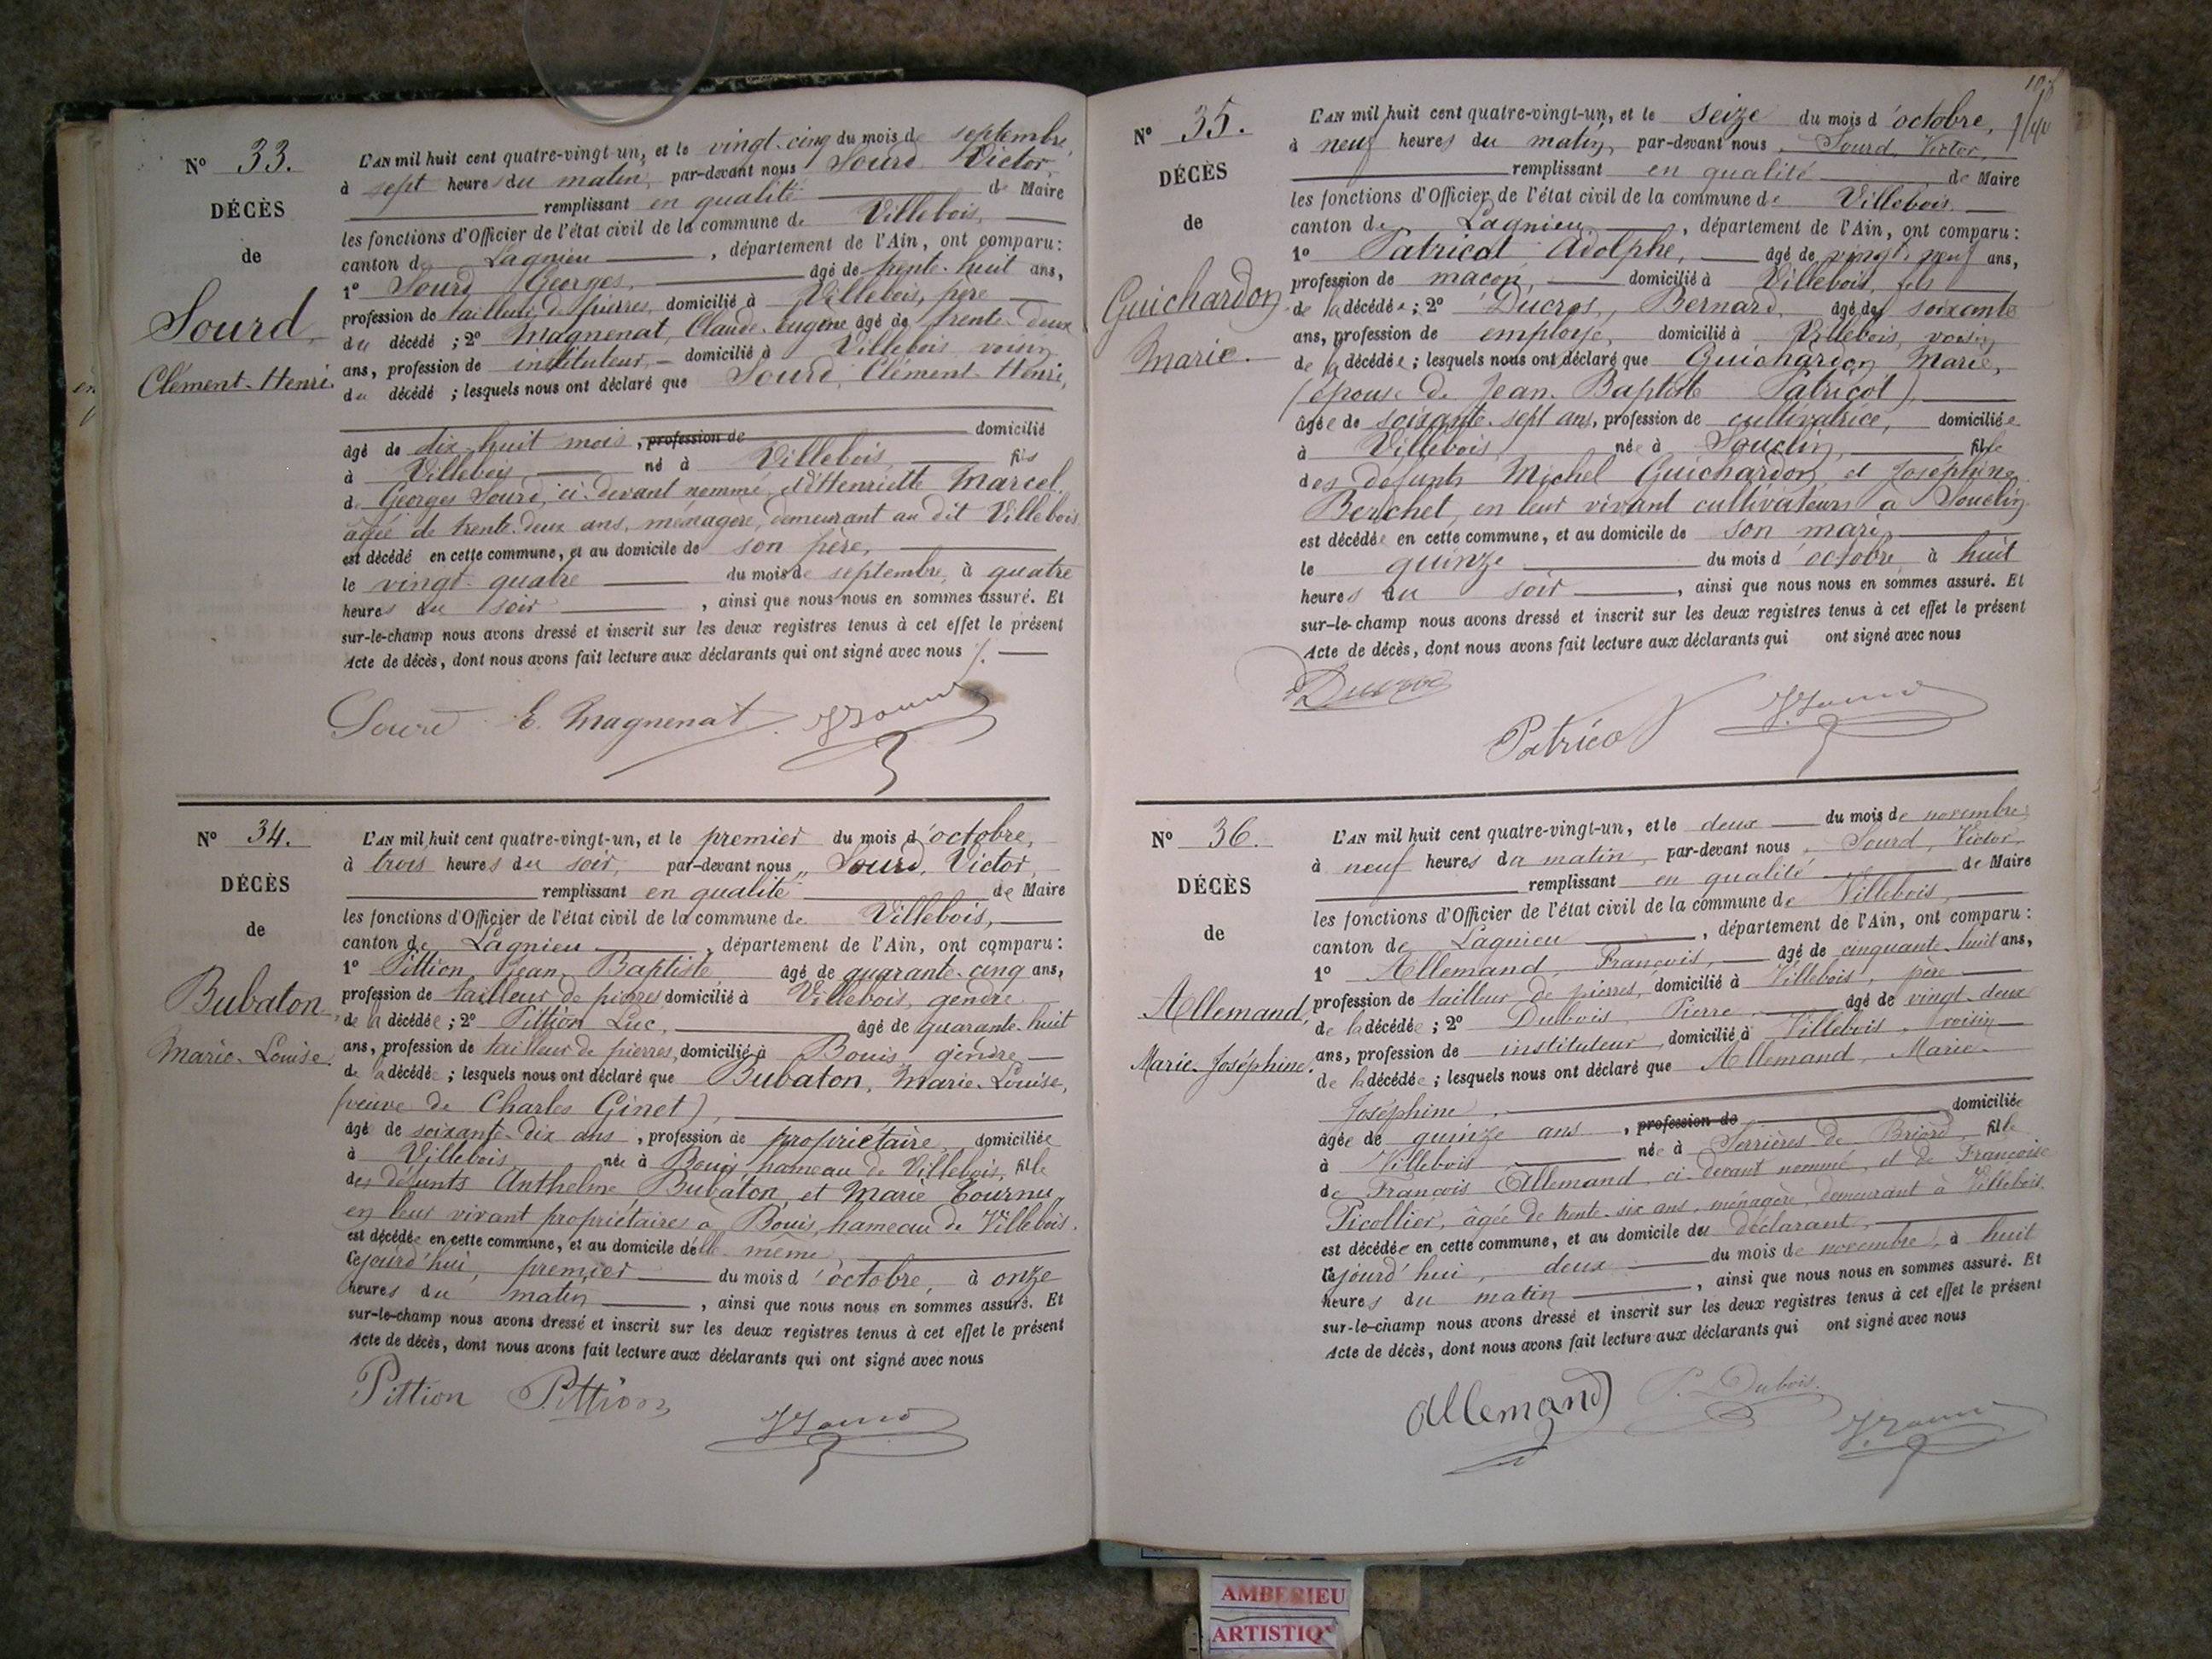 N° 33.
DÉCÈS
de
Sourd,
Clément-Henri.
L'AN mil huit cent quatre-vingt-un, et le vingt-cinq du mois de septembre,
à sept heures du matin, par-devant nous Sourd Victor,
remplissant en qualité de Maire
les fonctions d'Officier de l'état civil de la commune de Villebois,
canton de Lagnieu, département de l'Ain, ont comparu:
1° Sourd Georges, âgé de trente-huit ans,
profession de tailleur de pierres, domicilié à Villebois, père
du décédé ; 2° Magnenat, Claude-Eugène âgé de trente-deux
ans, profession de instituteur, domicilié à Villebois voisin
du décédé ; lesquels nous ont déclaré que Sourd, Clément-Henri,
âgé de dix-huit mois, profession de domicilié
à Villebois né à Villebois, fils
de Georges Sourd, ci-devant nommé, et d'Henriette Marcel,
âgée de trente-deux ans, ménagère, demeurant au dit Villebois
est décédé en cette commune, et au domicile de son père,
le vingt-quatre du mois de septembre, à quatre
heures du soir, ainsi que nous nous en sommes assuré. Et
sur-le-champ nous avons dressé et inscrit sur les deux registres tenus à cet effet le présent
Acte de décès, dont nous avons fait lecture aux déclarants qui ont signé avec nous
Sourd E. Magnenat V. Sourd
N° 34.
DÉCÈS
de
Bubaton,
Marie-Louise.
L'AN mil huit cent quatre-vingt-un, et le premier du mois d'octobre,
à trois heures du soir, par-devant nous, Sourd, Victor,
remplissant en qualité de Maire
les fonctions d'Officier de l'état civil de la commune de Villebois,
canton de Lagnieu, département de l'Ain, ont comparu:
1° Pittion Jean Baptiste âgé de quarante-cinq ans,
profession de tailleur de pierres domicilié à Villebois, gendre
de la décédée ; 2° Pittion Luc, âgé de quarante-huit
ans, profession de tailleur de pierres, domicilié à Bouis gendre
de la décédée ; lesquels nous ont déclaré que Bubaton, Marie-Louise,
(veuve de Charles Ginet),
âgé de soixante-dix ans, profession de propriétaire, domiciliée
à Villebois née à Bouis, hameau de Villebois, fille
des défunts Anthelme Bubaton et Marie Tournu,
en leur vivant propriétaires à Bouis, hameau de Villebois.
est décédée en cette commune, et au domicile d'elle-même,
cejourd'hui, premier du mois d'octobre, à onze
heures du matin, ainsi que nous nous en sommes assuré. Et
sur-le-champ nous avons dressé et inscrit sur les deux registres tenus à cet effet le présent
Acte de décès, dont nous avons fait lecture aux déclarants qui ont signé avec nous
Pittion Pittion V. Sourd
N° 35.
DÉCÈS
de
Guichardon
Marie.
L'AN mil huit cent quatre-vingt-un, et le seize du mois d'octobre,
à neuf heures du matin, par-devant nous, Sourd, Victor,
remplissant en qualité de Maire
les fonctions d'Officier de l'état civil de la commune de Villebois
canton de Lagnieu, département de l'Ain, ont comparu:
1° Patricot Adolphe, âgé de vingt-neuf ans,
profession de maçon, domicilié à Villebois, fils
de la décédée ; 2° Ducros, Bernard, âgé de soixante
ans, profession de employé, domicilié à Villebois, voisin
de la décédée ; lesquels nous ont déclaré que Guichardon Marie,
(épouse de Jean-Baptiste Patricot),
âgée de soixante-sept ans, profession de cultivatrice, domiciliée
à Villebois, née à Souclin, fille
des défunts Michel Guichardon et Joséphine
Berchet, en leur vivant cultivateurs à Souclin
est décédée en cette commune, et au domicile de son mari,
le quinze du mois d'octobre, à huit
heures du soir, ainsi que nous nous en sommes assuré. Et
sur-le-champ nous avons dressé et inscrit sur les deux registres tenus à cet effet le présent
Acte de décès, dont nous avons fait lecture aux déclarants qui ont signé avec nous
Ducros
Patricot V. Sourd
N° 36.
DÉCÈS
de
Allemand,
Marie-Joséphine.
L'AN mil huit cent quatre-vingt-un, et le deux du mois de novembre
à neuf heures du matin, par-devant nous, Sourd, Victor,
remplissant en qualité de Maire
les fonctions d'Officier de l'état civil de la commune de Villebois,
canton de Lagnieu, département de l'Ain, ont comparu:
1° Allemand, François, âgé de cinquante-huit ans,
profession de tailleur de pierres, domicilié à Villebois, père
de la décédée ; 2° Dubois, Pierre âgé de vingt-deux
ans, profession de instituteur, domicilié à Villebois, voisin
de la décédée ; lesquels nous ont déclaré que Allemand, Marie-
Joséphine, domiciliée
âgée de quinze ans, profession de
à Villebois née à Serrières de Briord, fille
de François Allemand, ci-devant nommé, et de Françoise
Picollier, âgée de trente-six ans, ménagère, demeurant à Villebois
est décédée en cette commune, et au domicile du déclarant,
cejourd'hui, deux du mois de novembre, à huit
heures du matin, ainsi que nous nous en sommes assuré. Et
sur-le-champ nous avons dressé et inscrit sur les deux registres tenus à cet effet le présent
Acte de décès, dont nous avons fait lecture aux déclarants qui ont signé avec nous
Allemand P. Dubois.
V. Sourd
AMBERIEU
ARTISTIQ